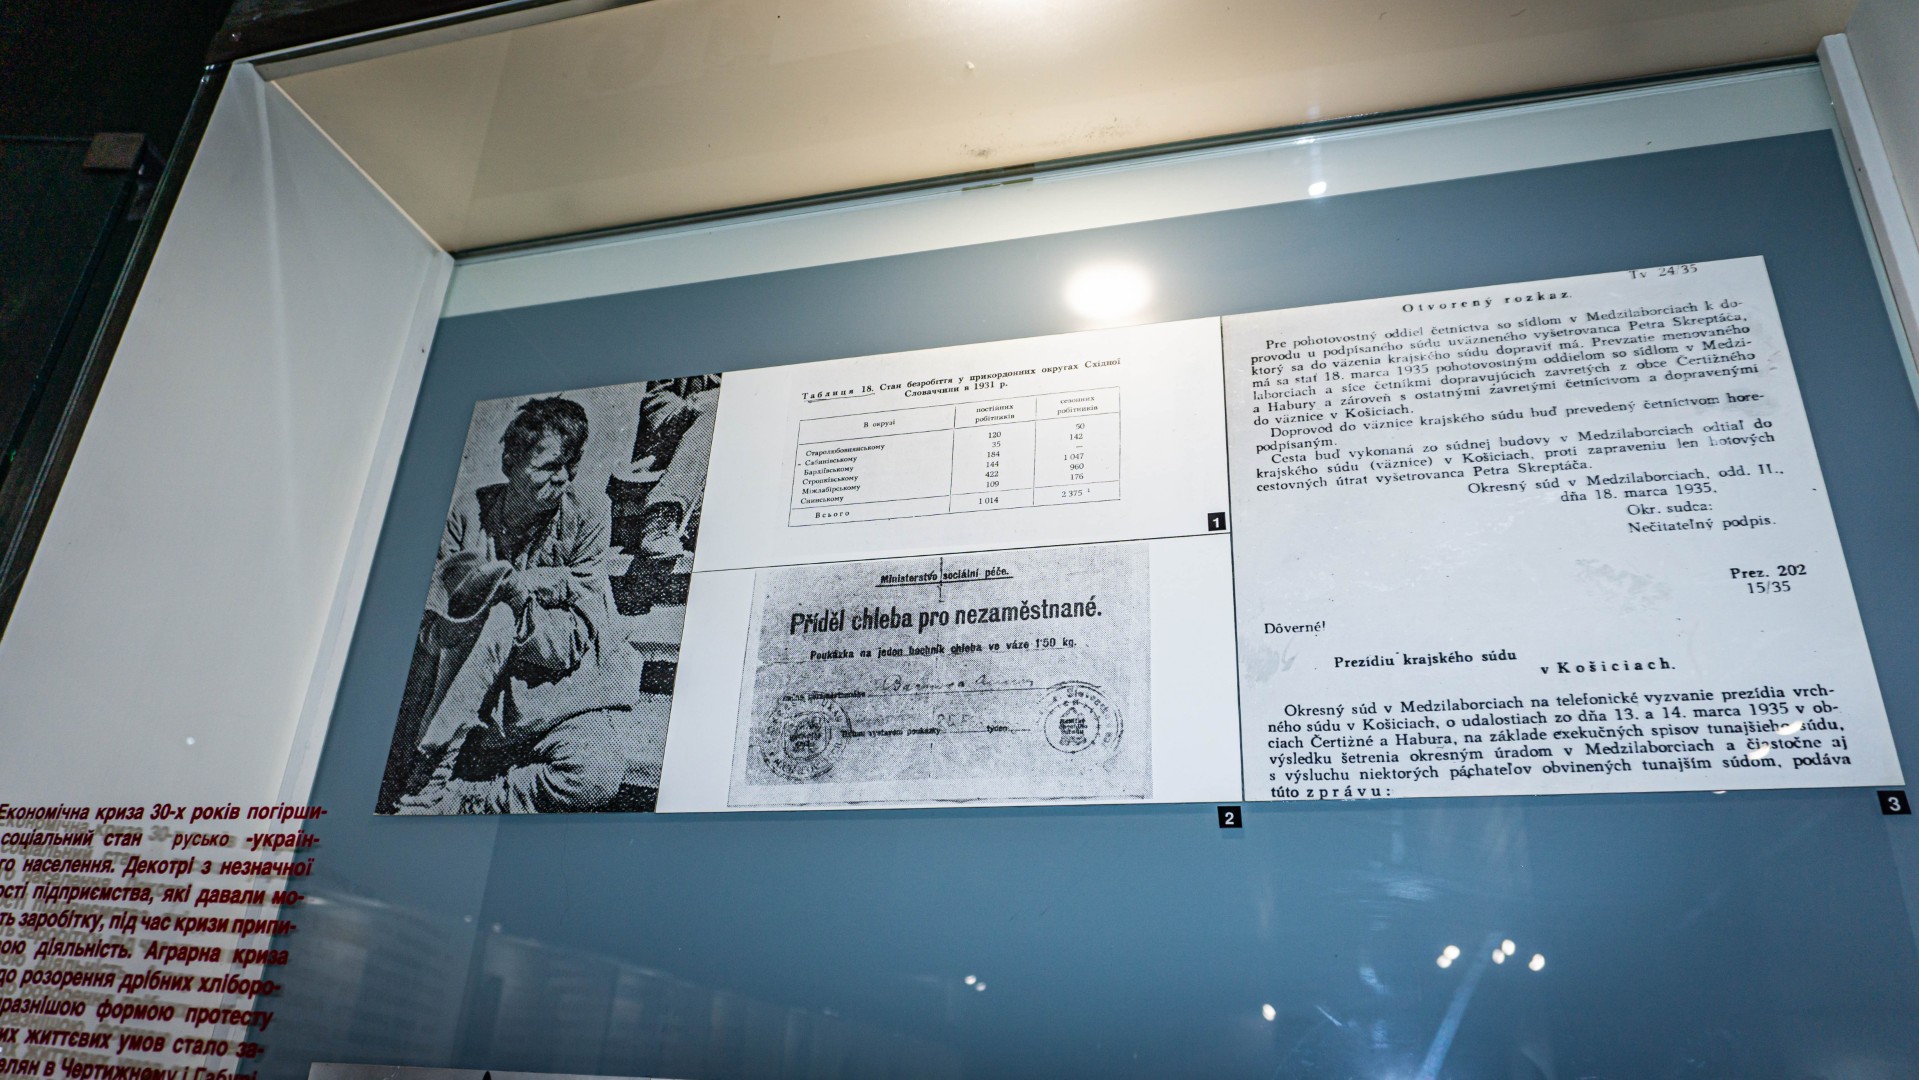 Таблиця 18. Стан безробіття у прикордонних округах Східної
Словаччини в 1931 р.
В окрузі
постійних
робітників
сезонних
робітників
Старолюбовнянському 120 50
Сабинівському 35 142
Бардіївському 184 —
Стропківському 144 1 047
Міжлабірському 422 960
Снинському 109 176
Всього 1 014 2 375 ¹
1
Ministerstvo sociální péče.
Příděl chleba pro nezaměstnané.
Poukázka na jeden bochník chleba ve váze 1·50 kg.
Datum vystavení poukázky týden
2
Tv 24/35
Otvorený rozkaz.
Pre pohotovostný oddiel četníctva so sídlom v Medzilaborciach k do-
provodu u podpísaného súdu uväzneného vyšetrovanca Petra Skreptáča,
ktorý sa do väzenia krajského súdu dopraviť má. Prevzatie menovaného
má sa stať 18. marca 1935 pohotovostným oddielom so sídlom v Medzi-
laborciach a síce četníkmi dopravujúcich zavretých z obce Čertižného
a Habury a zároveň s ostatnými zavretými četníctvom a dopravenými
do väznice v Košiciach.
Doprovod do väznice krajského súdu buď prevedený četníctvom hore-
podpísaným.
Cesta buď vykonaná zo súdnej budovy v Medzilaborciach odtiaľ do
krajského súdu (väznice) v Košiciach, proti zapraveniu len hotových
cestovných útrat vyšetrovanca Petra Skreptáča.
Okresný súd v Medzilaborciach, odd. II.,
dňa 18. marca 1935.
Okr. sudca:
Nečitateľný podpis.
Prez. 202
15/35
Dôverné!
Prezídiu krajského súdu
v Košiciach.
Okresný súd v Medzilaborciach na telefonické vyzvanie prezídia vrch-
ného súdu v Košiciach, o udalostiach zo dňa 13. a 14. marca 1935 v ob-
ciach Čertižné a Habura, na základe exekučných spisov tunajšieho súdu,
výsledku šetrenia okresným úradom v Medzilaborciach a čiastočne aj
s výsluchu niektorých páchateľov obvinených tunajším súdom, podáva
túto zprávu:
3
Економічна криза 30-х років погірши-
соціальний стан русько -україн-
го населення. Декотрі з незначної
ості підприємства, які давали мо-
ть заробітку, під час кризи припи-
ою діяльність. Аграрна криза
до розорення дрібних хліборо-
разнішою формою протесту
их життєвих умов стало за-
елян в Чертижному і Габурі